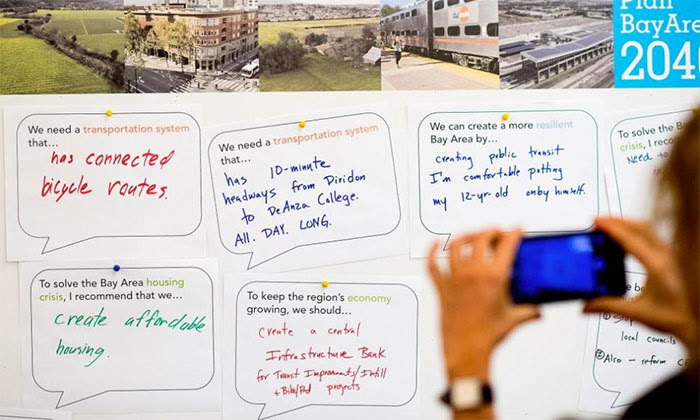 Plan
BayArea
2040
We need a transportation system
that...
has connected
bicycle routes.
We need a transportation system
that...
has 10-minute
headways from Diridon
to DeAnza College.
All. DAY. LONG.
We can create a more resilient
Bay Area by...
creating public transit
I'm comfortable putting
my 12-yr-old on by himself.
To solve the Bay
crisis, I reco
Need to
To solve the Bay Area housing
crisis, I recommend that we...
create affordable
housing.
To keep the region's economy
growing, we should...
Create a central
Infrastructure Bank
for Transit Improvements/Infill
+ Bike/Ped projects
local councils
② Also - reform